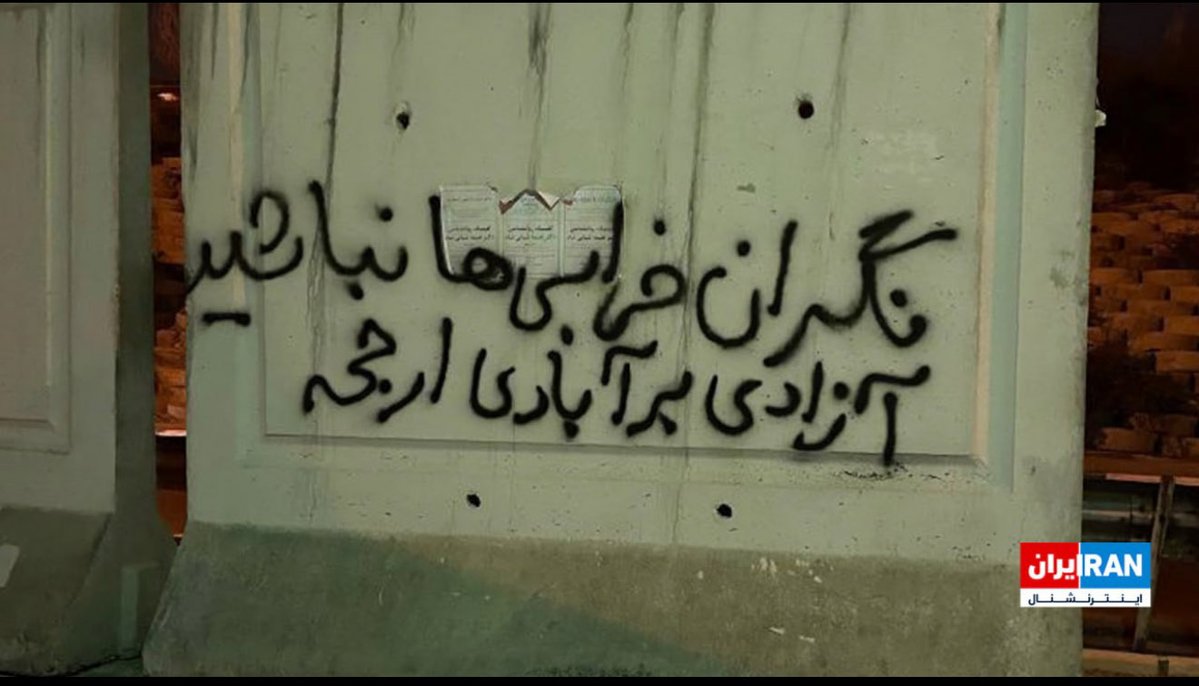 نگران خرابی‌ها نباشید
آزادی بر آبادی ارجحه
IRAN ایران
اینترنشنال